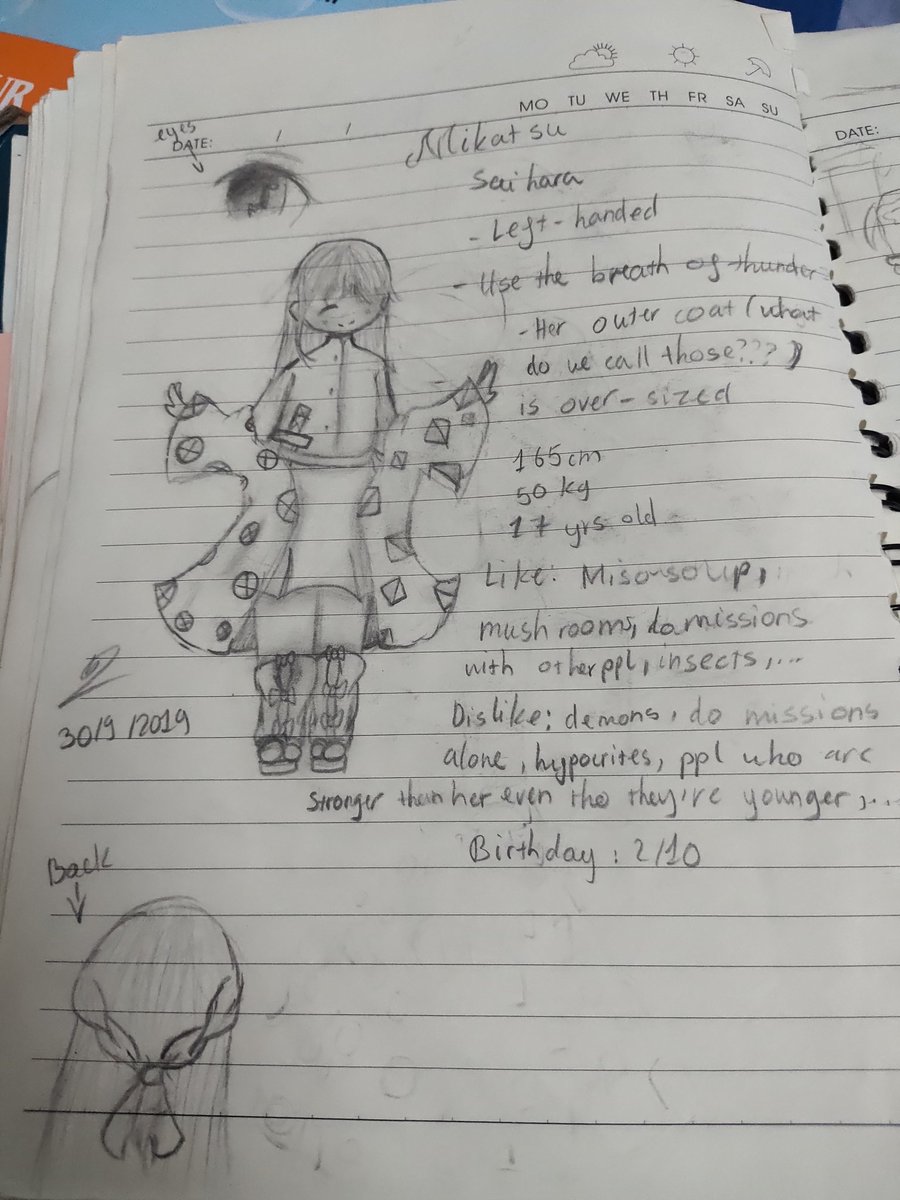 UR
MO TU WE TH FR SA SU
eyes
DATE: / /
DATE:
Mikatsu
Saihara
- Left-handed
- Use the breath of thunder
- Her outer coat (what
do we call those???)
is over-sized
165cm
50 kg
17 yrs old
Like: Miso soup,
mushrooms, do missions
with other ppl, insects,...
30/9/2019
Dislike: demons, do missions
alone, hypocrites, ppl who are
stronger than her even tho they're younger,...
Birthday: 2/10
Back